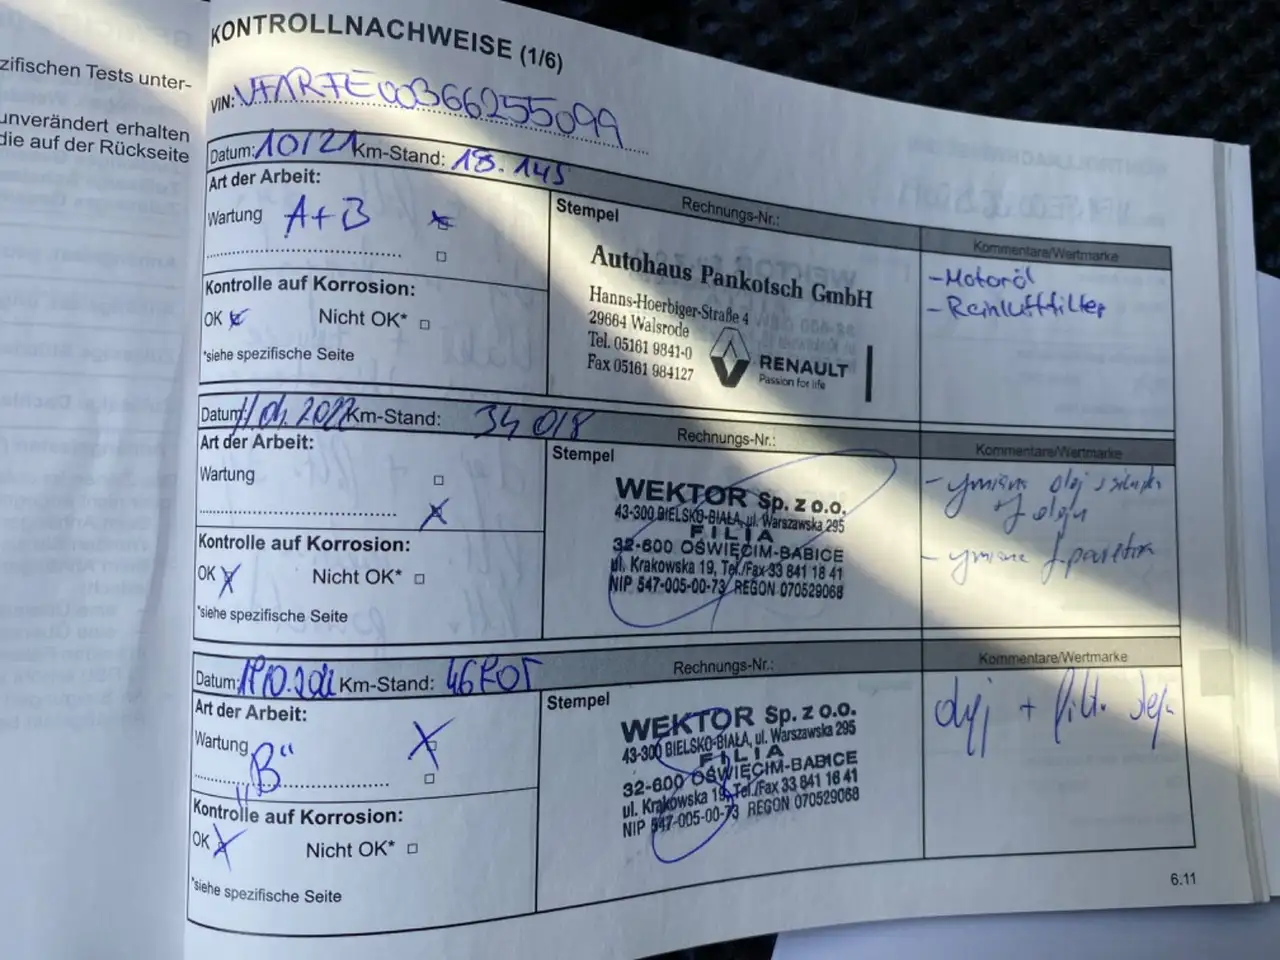 zifischen Tests unter-
unverändert erhalten
die auf der Rückseite
KONTROLLNACHWEISE (1/6)
VIN: VF1RFE00366255099
Datum: 10/21 Km-Stand: 18.145
Rechnungs-Nr.:
Art der Arbeit:
Wartung A+B
Kontrolle auf Korrosion:
OK Nicht OK*
*siehe spezifische Seite
Stempel
Autohaus Pankotsch GmbH
Hanns-Hoerbiger-Straße 4
29664 Walsrode
Tel. 05161 9841-0
Fax 05161 984127
RENAULT
Passion for life
Kommentare/Wertmarke
-Motoröl
-Reinluftfilter
Datum: 11.04.2022 Km-Stand: 34 018
Rechnungs-Nr.:
Art der Arbeit:
Wartung
Kontrolle auf Korrosion:
OK Nicht OK*
*siehe spezifische Seite
Stempel
WEKTOR Sp. z o.o.
43-300 BIELSKO-BIAŁA, ul. Warszawska 295
FILIA
32-600 OŚWIĘCIM-BABICE
ul. Krakowska 19, Tel./Fax 33 841 18 41
NIP 547-005-00-73 REGON 070529068
Kommentare/Wertmarke
- olej
+ f oleju
-
Datum: Km-Stand:
Rechnungs-Nr.:
Art der Arbeit:
Wartung
„B“
Kontrolle auf Korrosion:
OK Nicht OK*
*siehe spezifische Seite
Stempel
WEKTOR Sp. z o.o.
43-300 BIELSKO-BIAŁA, ul. Warszawska 295
FILIA
32-600 OŚWIĘCIM-BABICE
ul. Krakowska 19, Tel./Fax 33 841 18 41
NIP 547-005-00-73 REGON 070529068
Kommentare/Wertmarke
olej + filtr oleju
6.11